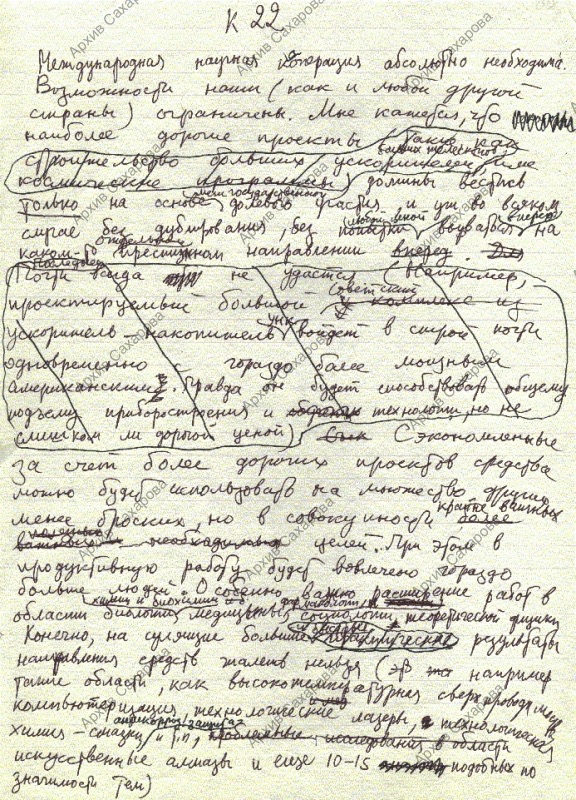 К 22
Международная научная кооперация абсолютно необходима.
Возможности наши (как и любой другой
страны) ограничены. Мне кажется, что
наиболее дорогие проекты (такие как
больших телескопов
строительство больших ускорителей, или
космические программы) должны вестись
межгосударственного
только на основе долевого участия и уж во всяком
любой ценой вперед
случае без дублирования, без попытки вырваться на
отдельном
каком- престижном направлении вперед. Для
последнее
Почти всегда не удастся (Например,
советский
проектируемый большой комплекс из
УНК
ускоритель накопитель войдет в строй почти
одновременно с гораздо более мощным
американским. Правда он будет способствовать общему
подъему приборостроения и технологии, но не
слишком ли дорогой ценой) Сэкономленные
за счет более дорогих проектов средства
можно будет использовать на множество других
крайне важных
менее броских, но в совокупности более
важных необходимых целей. При этом в
продуктивную работу будет вовлечено гораздо
больше людей. Особенно важно расширение работ в
химии и биохимии фармакологии
области биологии, медицины, социологии, теоретической физики
Конечно, на сулящие большие практические результаты
направления средств жалеть нельзя (это например
такие области, как высокотемпературная сверхпроводимость
компьютеризация, технологические лазеры, технологическая
антикорроз. защита
химия - и т.п., проблемные исследования в области
искусственные алмазы и еще 10-15 подобных по
значимости тем)
Архив Сахарова
Архив Сахарова
Архив Сахарова
Архив Сахарова
Архив Сахарова
Архив Сахарова
Архив Сахарова
Архив Сахарова
Архив Сахарова